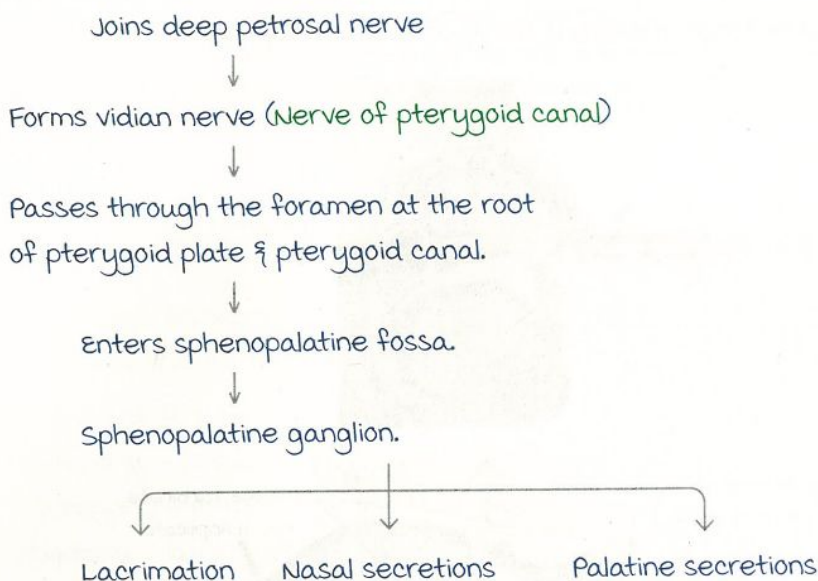 Joins deep petrosal nerve
Forms vidian nerve (Nerve of pterygoid canal)
Passes through the foramen at the root
of pterygoid plate & pterygoid canal.
Enters sphenopalatine fossa.
Sphenopalatine ganglion.
Lacrimation Nasal secretions Palatine secretions